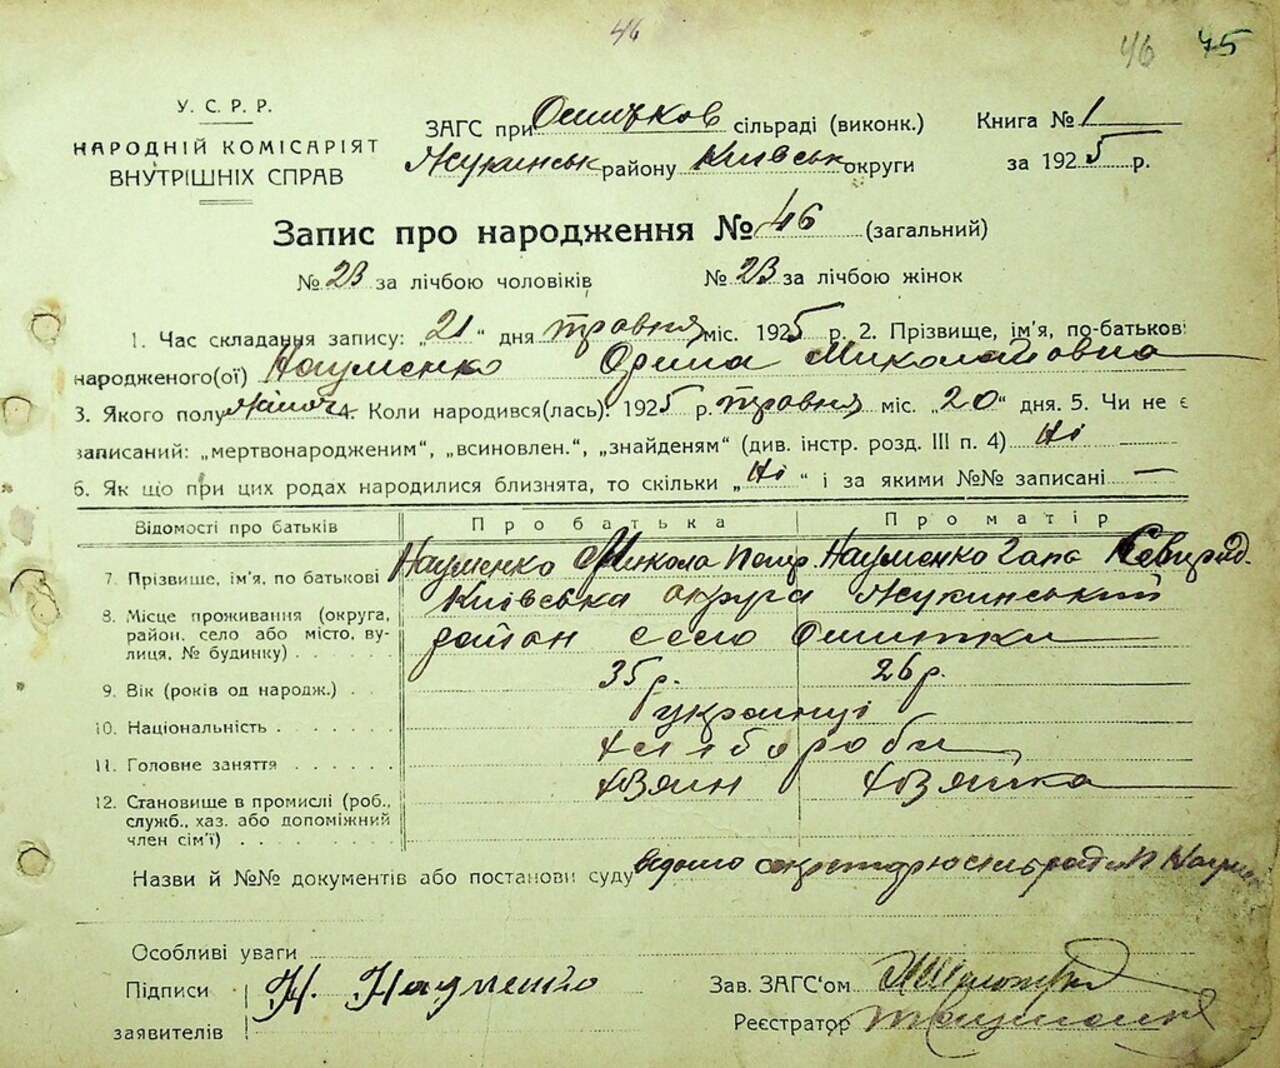 46
46 45
У. С. Р. Р.
НАРОДНІЙ КОМІСАРІЯТ
ВНУТРІШНІХ СПРАВ
ЗАГС при Ошитков сільраді (виконк.)
Жукинськ району Київськ округи
Книга № 1
за 1925 р.
Запис про народження № 46 (загальний)
№ 23 за лічбою чоловіків № 23 за лічбою жінок
1. Час складання запису: „21“ дня травня міс. 1925 р. 2. Прізвище, ім'я, по-батькові
народженого(ої) Науменко Орина Миколаївна
3. Якого полу жіноч 4. Коли народився(лась): 1925 р. травня міс. „20“ дня. 5. Чи не є
записаний: „мертвонародженим“, „всиновлен.“, „знайденям“ (див. інстр. розд. III п. 4) Ні
6. Як що при цих родах народилися близнята, то скільки „Ні“ і за якими №№ записані —
Відомості про батьків Про батька Про матір
7. Прізвище, ім'я, по батькові Науменко Микола Петр. Науменко Гапа
8. Місце проживання (округа, район, село або місто, вулиця, № будинку) Київська округа Жукинський
район село Ошитки
9. Вік (років од народж.) 35 р. 26 р.
10. Національність українці
11. Головне заняття хлібороби
12. Становище в промислі (роб., служб., хаз. або допоміжний член сім'ї) хазяин хазяйка
Назви й №№ документів або постанови суду відомо секретарю сільради Н Наумен
Особливі уваги
Підписи заявителів Н. Науменко
Зав. ЗАГС'ом
Реєстратор